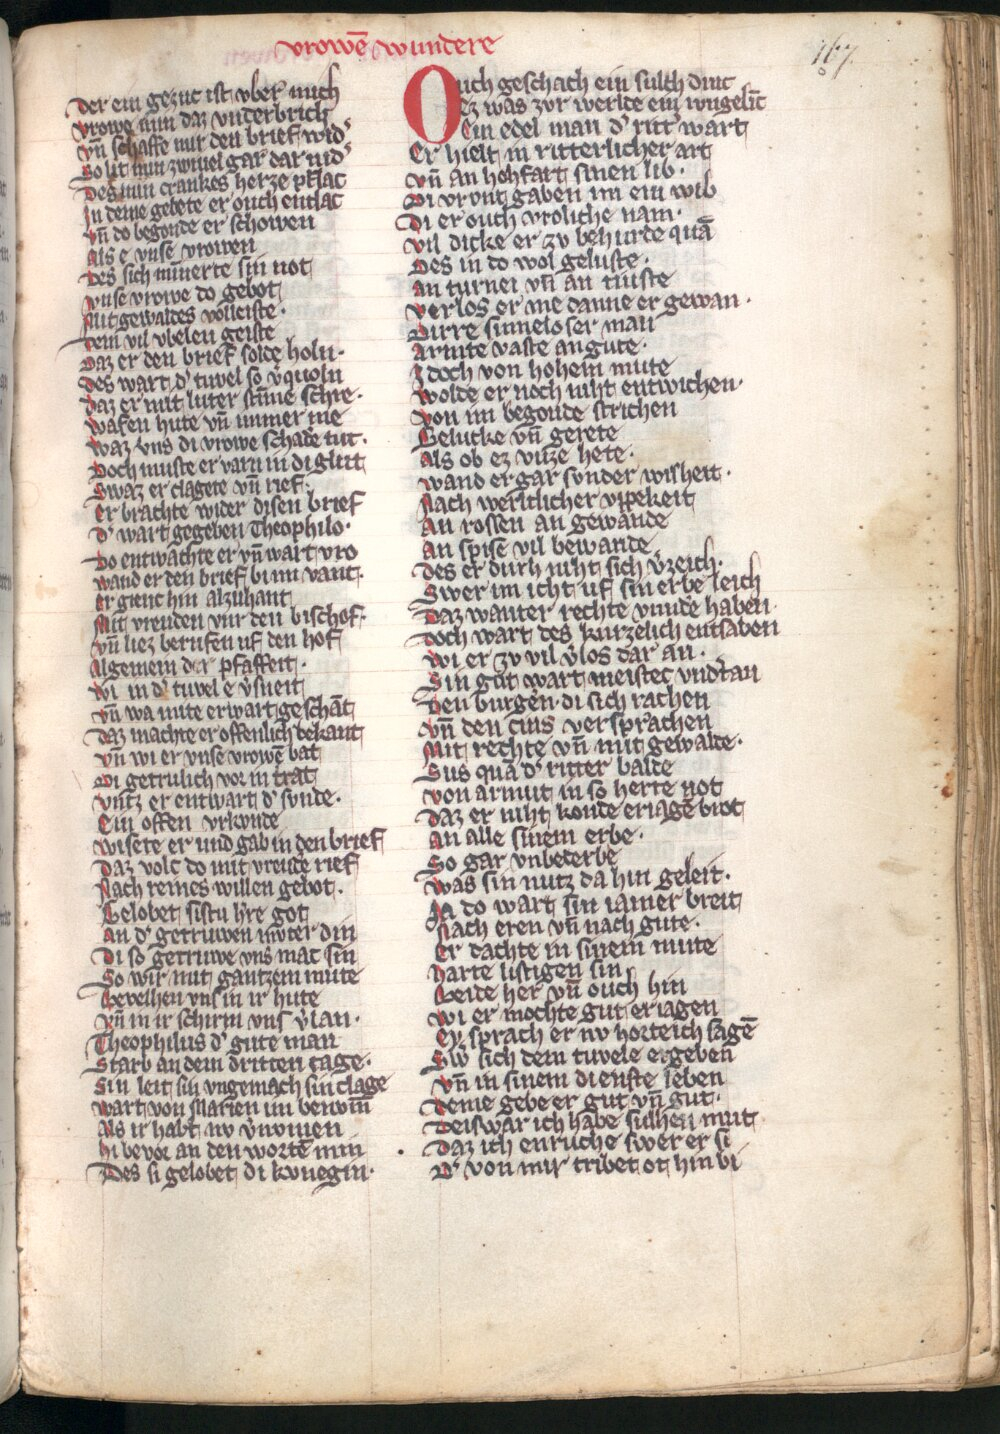 vrowē wundere
167
Der ein gezuc ist vber mich
vrowe min daz vnderbrich
vn̄ schaffe mir den brief wid᾽
So lit min zwiuel gar dar nid᾽
Des min crankes herze pflac
In deme gebete er ouch entlac
vn̄ do begonde er schowen
Als e vnse vrowen
Des sich minnerte sin not
vnse vrowe do gebot
Mit gewaldes volleiste .
Dem vil vbelen geiste
Daz er den brief solde holn .
des wart d᾽ tuvel so v᾽quoln
daz er mit luter stīme schre .
wafen hute vn̄ immer me
waz vns di vrowe schade tut .
Doch muste er varn in di glut
Swaz er clagete vn̄ rief .
Er brachte wider disen brief
d᾽ wart gegeben Theophilo .
Do entwachte er vn̄ wart vro
wand er den brief bi im vant .
Er gienc hin alzuhant
Mit vreuden vur den bischof .
vn̄ liez berufen uf den hof
Algemein der pfaffeit .
wi in d᾽ tuvel e v᾽sneit
vn̄ wa mite er wart geschāt
daz machte er offenlich bekant
vn̄ wi er vnse vrowē bat
Di getrulich vor in trat
vntz er entwart d᾽ svnde .
Ein offen vrkunde
wisete er und gab in den brief
Daz volc do mit vreude rief
Nach reines willen gebot .
Gelobet sistu h᾽re got
an d᾽ getruwen mūter din
Di so getruwe vns mac sin
So wir mit gantzem mute
Bevelhen vns in ir hute
vn̄ in ir schirm vns v᾽lan .
Theophilus d᾽ gute man
Starb an dem dritten tage .
Sin leit sin vngemach sin clage
wart von Marien im benvm̄
Als ir habt nv v᾽nomen
hi bevor an den worten min
Des si gelobet di kvnegin .
Ouch geschach ein sulch dinc
ez was zvr werlde ein iungelīc
Ein edel man d᾽ ritt᾽ wart
Er hielt in ritterlicher art
vn̄ an hohfart sinen lib .
Di vrvnt gaben im ein wib
Di er ouch vroliche nam .
vil dicke er zv behurde quā
Des in do wol geluste .
an turnei vn̄ an tiuste
verlos er me danne er gewan .
Dirre sinneloser man
Armte vaste an gute .
I doch von hohem mute
wolde er noch niht entwichen .
von im begonde strichen
Gelucke vn̄ gerete
als ob ez vluze hete .
wand er gar svnder wisheit .
Nach werltlicher vipekeit
An rossen an gewande
an spise vil bewande
des er durh niht sich v᾽zeich .
Swer im icht uf sin erbe leich
Daz wanter rechte vunde haben
Doch wart des kurzelich entsaben
wi er zv vil v᾽los dar an .
Sin gut wart meistec vnd᾽tan
den burgen . di sich rachen
vn̄ den cins versprachen
Mit rechte vn̄ mit gewalde .
Sus quā d᾽ ritter balde
von armut in so herte not
daz er niht konde eriagē brot
an alle sinem erbe .
So gar vnbederbe
was sin nutz da hin geleit .
Ja do wart sin iamer breit
nach eren vn̄ nach gute .
Er dachte in sinem mute
harte listigen sin
Beide her vn̄ ouch hin
wi er mochte gut eriagen
Ey sprach er nv horte ich sagē
Sw sich dem tuvele ergeben
vn̄ in sinem dienste leben
deme gebe er gut vn̄ gut .
deiswar ich habe sulhen mut
daz ich enruche swer er si
D᾽ von mir tribet ot hin bi